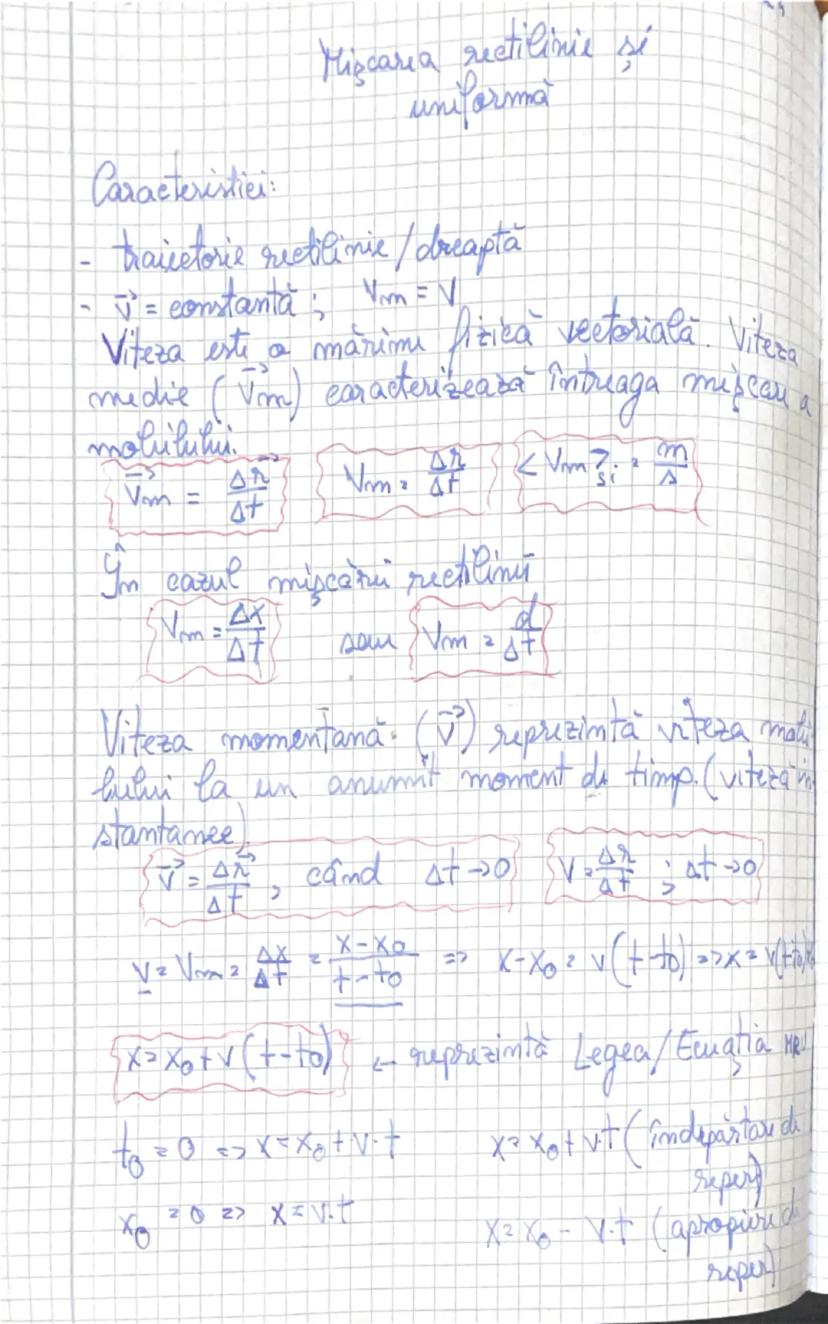 Mișcarea rectilinie și
uniformă
Caracteristici:
- traiectorie rectilinie/dreaptă
- v⃗ = constantă ; Vm = V
Viteza este o mărime fizică vectorială. Viteza
medie (v⃗m) caracterizează întreaga mișcare a
mobilului.
v⃗m = Δr⃗/Δt Vm = Δr/Δt <Vm>SI = m/s
În cazul mișcării rectilinii
Vm = Δx/Δt sau Vm = d/Δt
Viteza momentană (v⃗) reprezintă viteza mobi
lului la un anumit moment de timp. (viteză in
stantanee)
v⃗ = Δr⃗/Δt, când Δt→0 V = Δr/Δt ; Δt→0
V = Vm = Δx/Δt = x-x0/t-t0 => x-x0 = v(t-t0) => x = v(t-t0)
x = x0 + v(t-t0) ← reprezintă Legea/Ecuația MRU
t0 = 0 => x = x0 + v·t x = x0 + v·t (îndepărtare de
reper)
x0 = 0 => x = v·t x = x0 - v·t (apropiere de
reper)